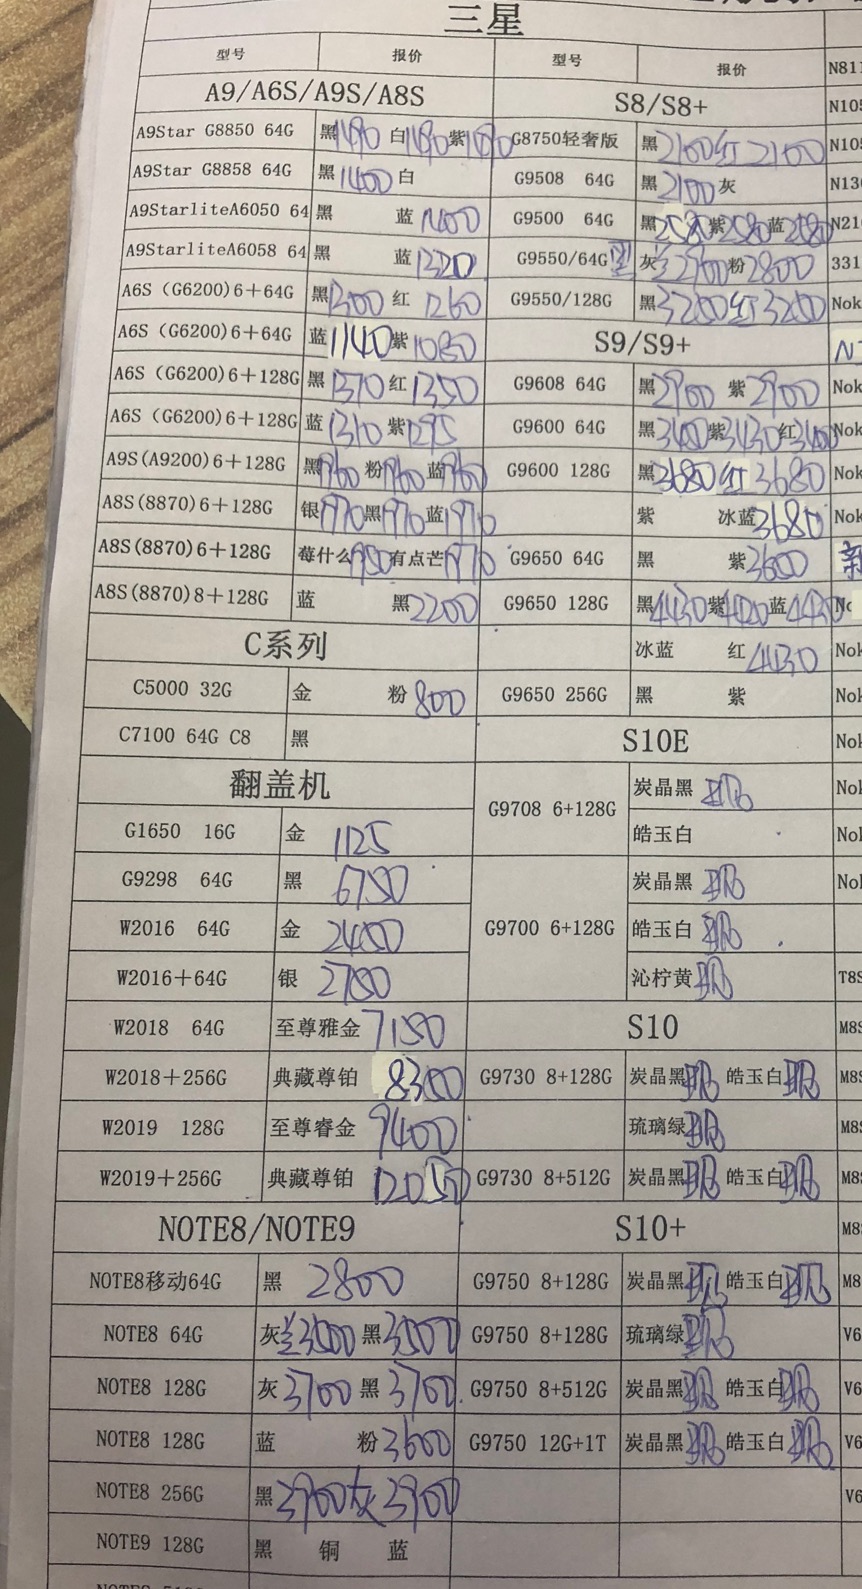 三星
型号 报价 型号 报价
N811
A9/A6S/A9S/A8S S8/S8+ N105
A9Star G8850 64G 黑1490 白1490紫1690 G8750轻奢版 黑2100红2100 N105
A9Star G8858 64G 黑1400白 G9508 64G 黑2100灰 N130
A9StarliteA6050 64 黑 蓝1400 G9500 64G 黑2580紫2580蓝2580 N21
A9StarliteA6058 64 黑 蓝1320 G9550/64G 灰 2900粉2800 331
A6S（G6200)6+64G 黑1300红 1260 G9550/128G 黑3200红3200 Nok
A6S（G6200)6+64G 蓝1140紫1080 S9/S9+
A6S（G6200)6+128G 黑1370红1350 G9608 64G 黑2900 紫2900 Nok
A6S（G6200)6+128G 蓝1310紫1295 G9600 64G 黑3480紫3430红3400 Nok
A9S(A9200)6+128G 黑1960粉1960蓝1960 G9600 128G 黑3680红3680 Nok
A8S(8870)6+128G 银1970黑1970蓝1970 紫 冰蓝3680 Nok
A8S(8870)6+128G 莓什么1950有点芒1970 G9650 64G 黑 紫3600 新
A8S(8870)8+128G 蓝 黑2200 G9650 128G 黑4430紫4420蓝4430
C系列 冰蓝 红4430 Nok
C5000 32G 金 粉800 G9650 256G 黑 紫 Nok
C7100 64G C8 黑 S10E Nok
翻盖机 G9708 6+128G 炭晶黑 现 Nok
G1650 16G 金 1125 皓玉白 Nok
G9298 64G 黑 6750 G9700 6+128G 炭晶黑 现 Nok
W2016 64G 金 2450 皓玉白 现
W2016+64G 银 2750 沁柠黄现 T8S
W2018 64G 至尊雅金7150 S10 M8S
W2018+256G 典藏尊铂 8300 G9730 8+128G 炭晶黑现 皓玉白现 M8S
W2019 128G 至尊睿金 9400 琉璃绿现 M8S
W2019+256G 典藏尊铂 12050 G9730 8+512G 炭晶黑现 皓玉白现 M8S
NOTE8/NOTE9 S10+ M8S
NOTE8移动64G 黑 2800 G9750 8+128G 炭晶黑现 皓玉白现 M8
NOTE8 64G 灰 3500黑3500 G9750 8+128G 琉璃绿现 V6
NOTE8 128G 灰3700黑3700 G9750 8+512G 炭晶黑现 皓玉白现 V6
NOTE8 128G 蓝 粉3600 G9750 12G+1T 炭晶黑现 皓玉白现 V6
NOTE8 256G 黑3900灰3900 V6
NOTE9 128G 黑 铜 蓝